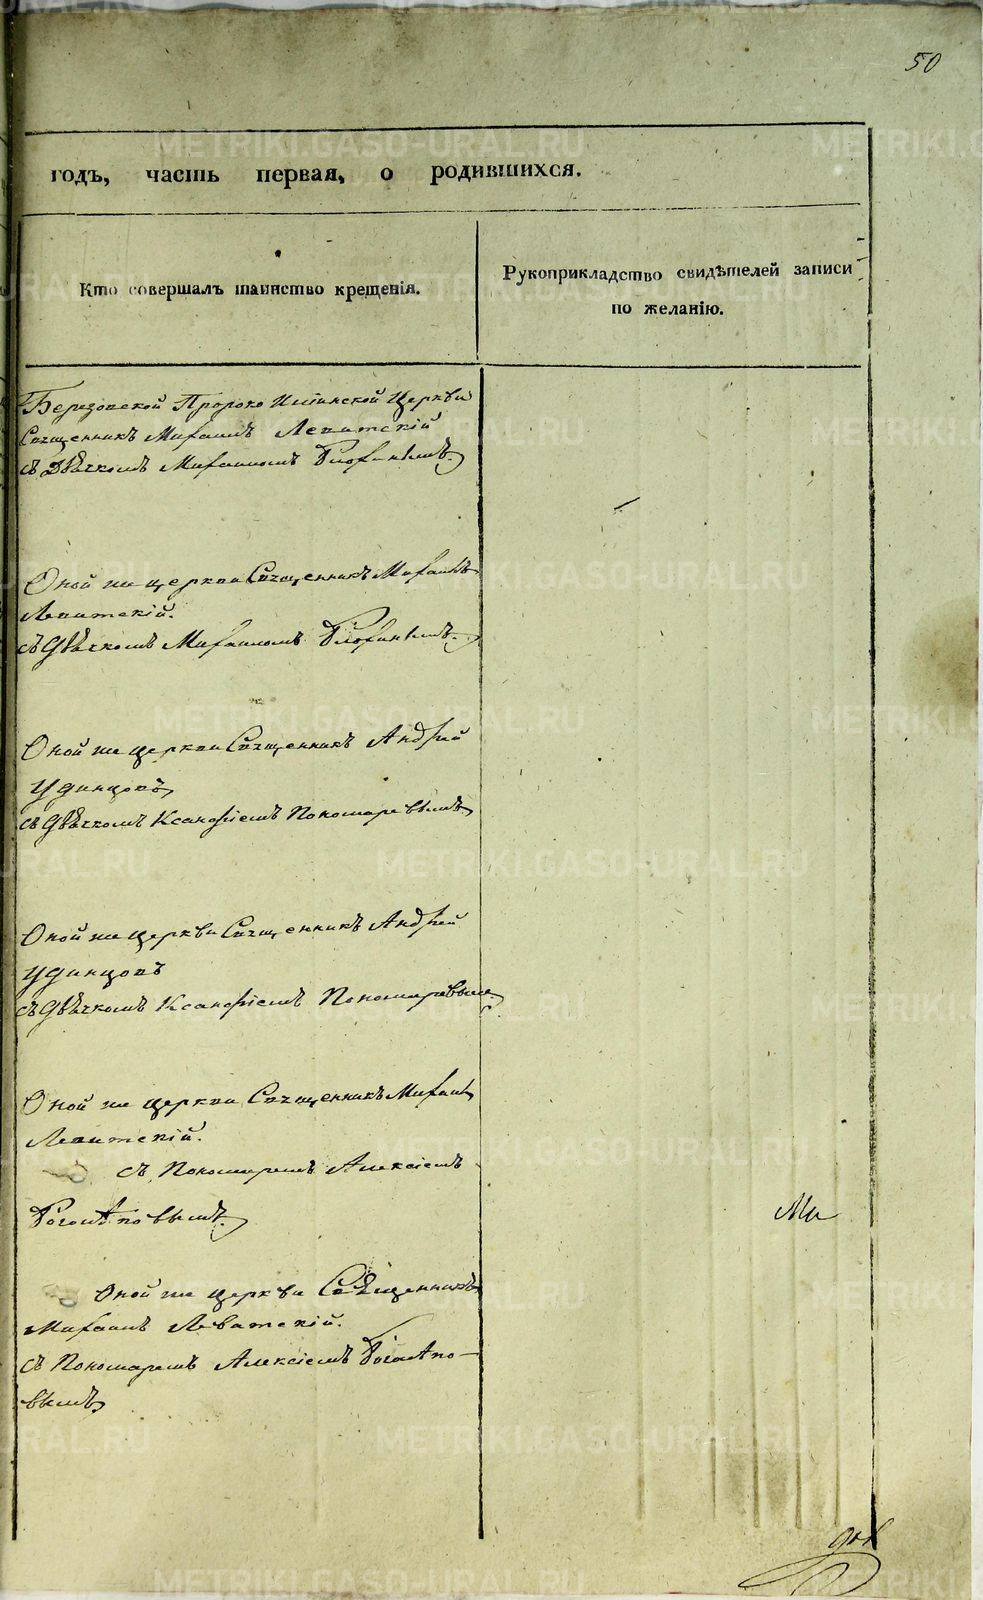 50
годъ, часть первая, о родившихся.
Кто совершалъ таинство крещенія.
Рукоприкладство свидѣтелей записи
по желанію.
Березовской Пророко Илiинской Церкви
Священникъ Михаилъ Левитскій
съ Дьячкомъ Михаиломъ
Оной же церкви Священникъ Михаилъ
Левитскій.
съ Дьячкомъ Михаиломъ
Оной же церкви Священникъ Андрей
Удинцовъ
съ Дьячкомъ Ксанофіемъ Пономаревымъ
Оной же церкви Священникъ Андрей
Удинцовъ
съ Дьячкомъ Ксанофіемъ Пономаревымъ
Оной же церкви Священникъ Михаилъ
Левитскій.
съ Пономаремъ Алексіемъ
Оной же церкви Священникъ
Михаилъ Левитскій.
съ Пономаремъ Алексіемъ
вымъ
Ми
METRIKI.GASO-URAL.RU